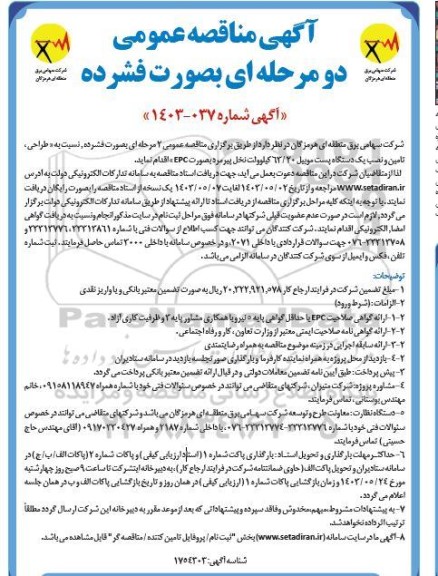 آگهی مناقصه عمومی
دو مرحله ای بصورت فشرده
شرکت سهامی برق
منطقه ای هرمزگان
شرکت سهامی برق
منطقه ای هرمزگان
«آگهی شماره ۰۳۷-۱۴۰۳»
شرکت سهامی برق منطقه ای هرمزگان در نظر دارد از طریق برگزاری مناقصه عمومی ۲ مرحله ای بصورت فشرده، نسبت به « طراحی،
تامین و نصب یک دستگاه پست موبیل ۶۳/۲۰ کیلوولت نخل پیرمرد بصورت EPC » اقدام نماید.
لذا از متقاضیان شرکت در این مناقصه دعوت بعمل می آید، جهت دریافت اسناد مناقصه به سامانه تدارکات الکترونیکی دولت به آدرس
www.setadiran.ir مراجعه و از تاریخ ۱۴۰۳/۰۵/۰۲ لغایت ۱۴۰۳/۰۵/۰۷ یک نسخه از اسناد مناقصه را بصورت رایگان دریافت
نمایند. با توجه به اینکه کلیه مراحل برگزاری مناقصه از دریافت اسناد تا ارائه پیشنهاد از طریق سامانه تدارکات الکترونیکی دولت برگزار
می گردد، لازم است در صورت عدم عضویت قبلی شرکتها در سامانه فوق مراحل ثبت نام در سایت مذکور انجام و نسبت به دریافت گواهی
امضار الکترونیکی اقدام نمایند. شرکت کنندگان می توانند جهت کسب اطلاع از سوالات فنی با شماره ۳۳۳۱۳۸۶۱، ۳۳۳۱۳۷۷۶ و
۳۳۳۱۳۷۵۸-۰۷۶ جهت سوالات قراردادی با داخلی ۲۰۷۱، و در خصوص سامانه با داخلی ۲۰۰۰ تماس حاصل فرمایند. ثبت شماره
تلفن ، فکس و ایمیل از سوی شرکت کنندگان در سامانه الزامی می باشد.
توضیحات:
۱- مبلغ تضمین شرکت در فرایند ارجاع کار ۲۰,۳۲۲,۹۲۱,۰۷۸ ریال به صورت تضمین معتبر بانکی و یا واریز نقدی
۲-الزامات: (شرط ورود)
۲-۱- ارائه گواهی صلاحیت EPC با حداقل گواهی پایه ۵ نیرو یا همکاری مشاور پایه ۳ و ظرفیت کاری آزاد.
۲-۲-ارائه گواهی نامه صلاحیت ایمنی معتبر از وزارت تعاون ، کار و رفاه اجتماعی.
۲-۳- ارائه سابقه اجرایی در زمینه موضوع مناقصه به همراه رضایتمندی
۲-۴- بازدید از محل پروژه به همراه نماینده کارفرما و بارگذاری صورتجلسه بازدید در سامانه ستاد ایران
۳- پیش پرداخت: طبق آیین نامه تضمین معاملات دولتی و در قبال ارائه تضمین معتبر بانکی پرداخت می گردد.
۴- مشاوره پروژه: شرکت متیران . شرکتهای متقاضی می توانند در خصوص سئوالات فنی خود با شماره همراه ۰۹۱۵۸۱۱۸۹۴۷، خانم
مهندس بوستانی ، تماس فرمایند.
۵-دستگاه نظارت : معاونت طرح و توسعه شرکت سهامی برق منطقه ای هرمزگان می باشد و شرکتهای متقاضی می توانند در خصوص
سئوالات فنی خود با شماره ۳۳۳۱۳۷۷۶-۳۳۳۱۳۷۷۴-۰۷۶، با داخلی شماره ۲۱۸۷ و همراه ۰۹۱۷۰۳۳۰۴۲۷ (آقای مهندس حاج
حسینی) تماس فرمایند.
۶- حداکثر مهلت بارگذاری و تحویل اسناد : بارگذاری پاکت شماره ۱ (اسناد ارزیابی کیفی) و پاکات شماره ۲ (پاکات الف / ب / ج) در
سامانه ستاد ایران و تحویل پاکت الف (حاوی ضمانتنامه شرکت در فرایند ارجاع کار) ، به دبیرخانه اینشرکت تا ساعت ۹ صبح روز چهارشنبه
مورخ ۱۴۰۳/۰۵/۲۴ و زمان بازگشایی پاکات شماره ۱ (ارزیابی کیفی) در همان روز و تاریخ بازگشایی پاکات الف و ب در همان جلسه
اعلام می گردد.
۷- به پیشنهادات مشروط،مبهم،مخدوش وفاقد سپرده و پیشنهاداتی که بعد از موعد مقرر به دبیرخانه این شرکت ارسال گردد مطلقاً
ترتیب اثر داده نخواهد شد.
۸-آگهی ما در سایت سامانه (www.setadiran.ir) بخش "ثبت نام / پروفایل تامین کننده / مناقصه گر" قابل مشاهده می باشد.
شناسه آگهی: ۱۷۵۴۳۰۳